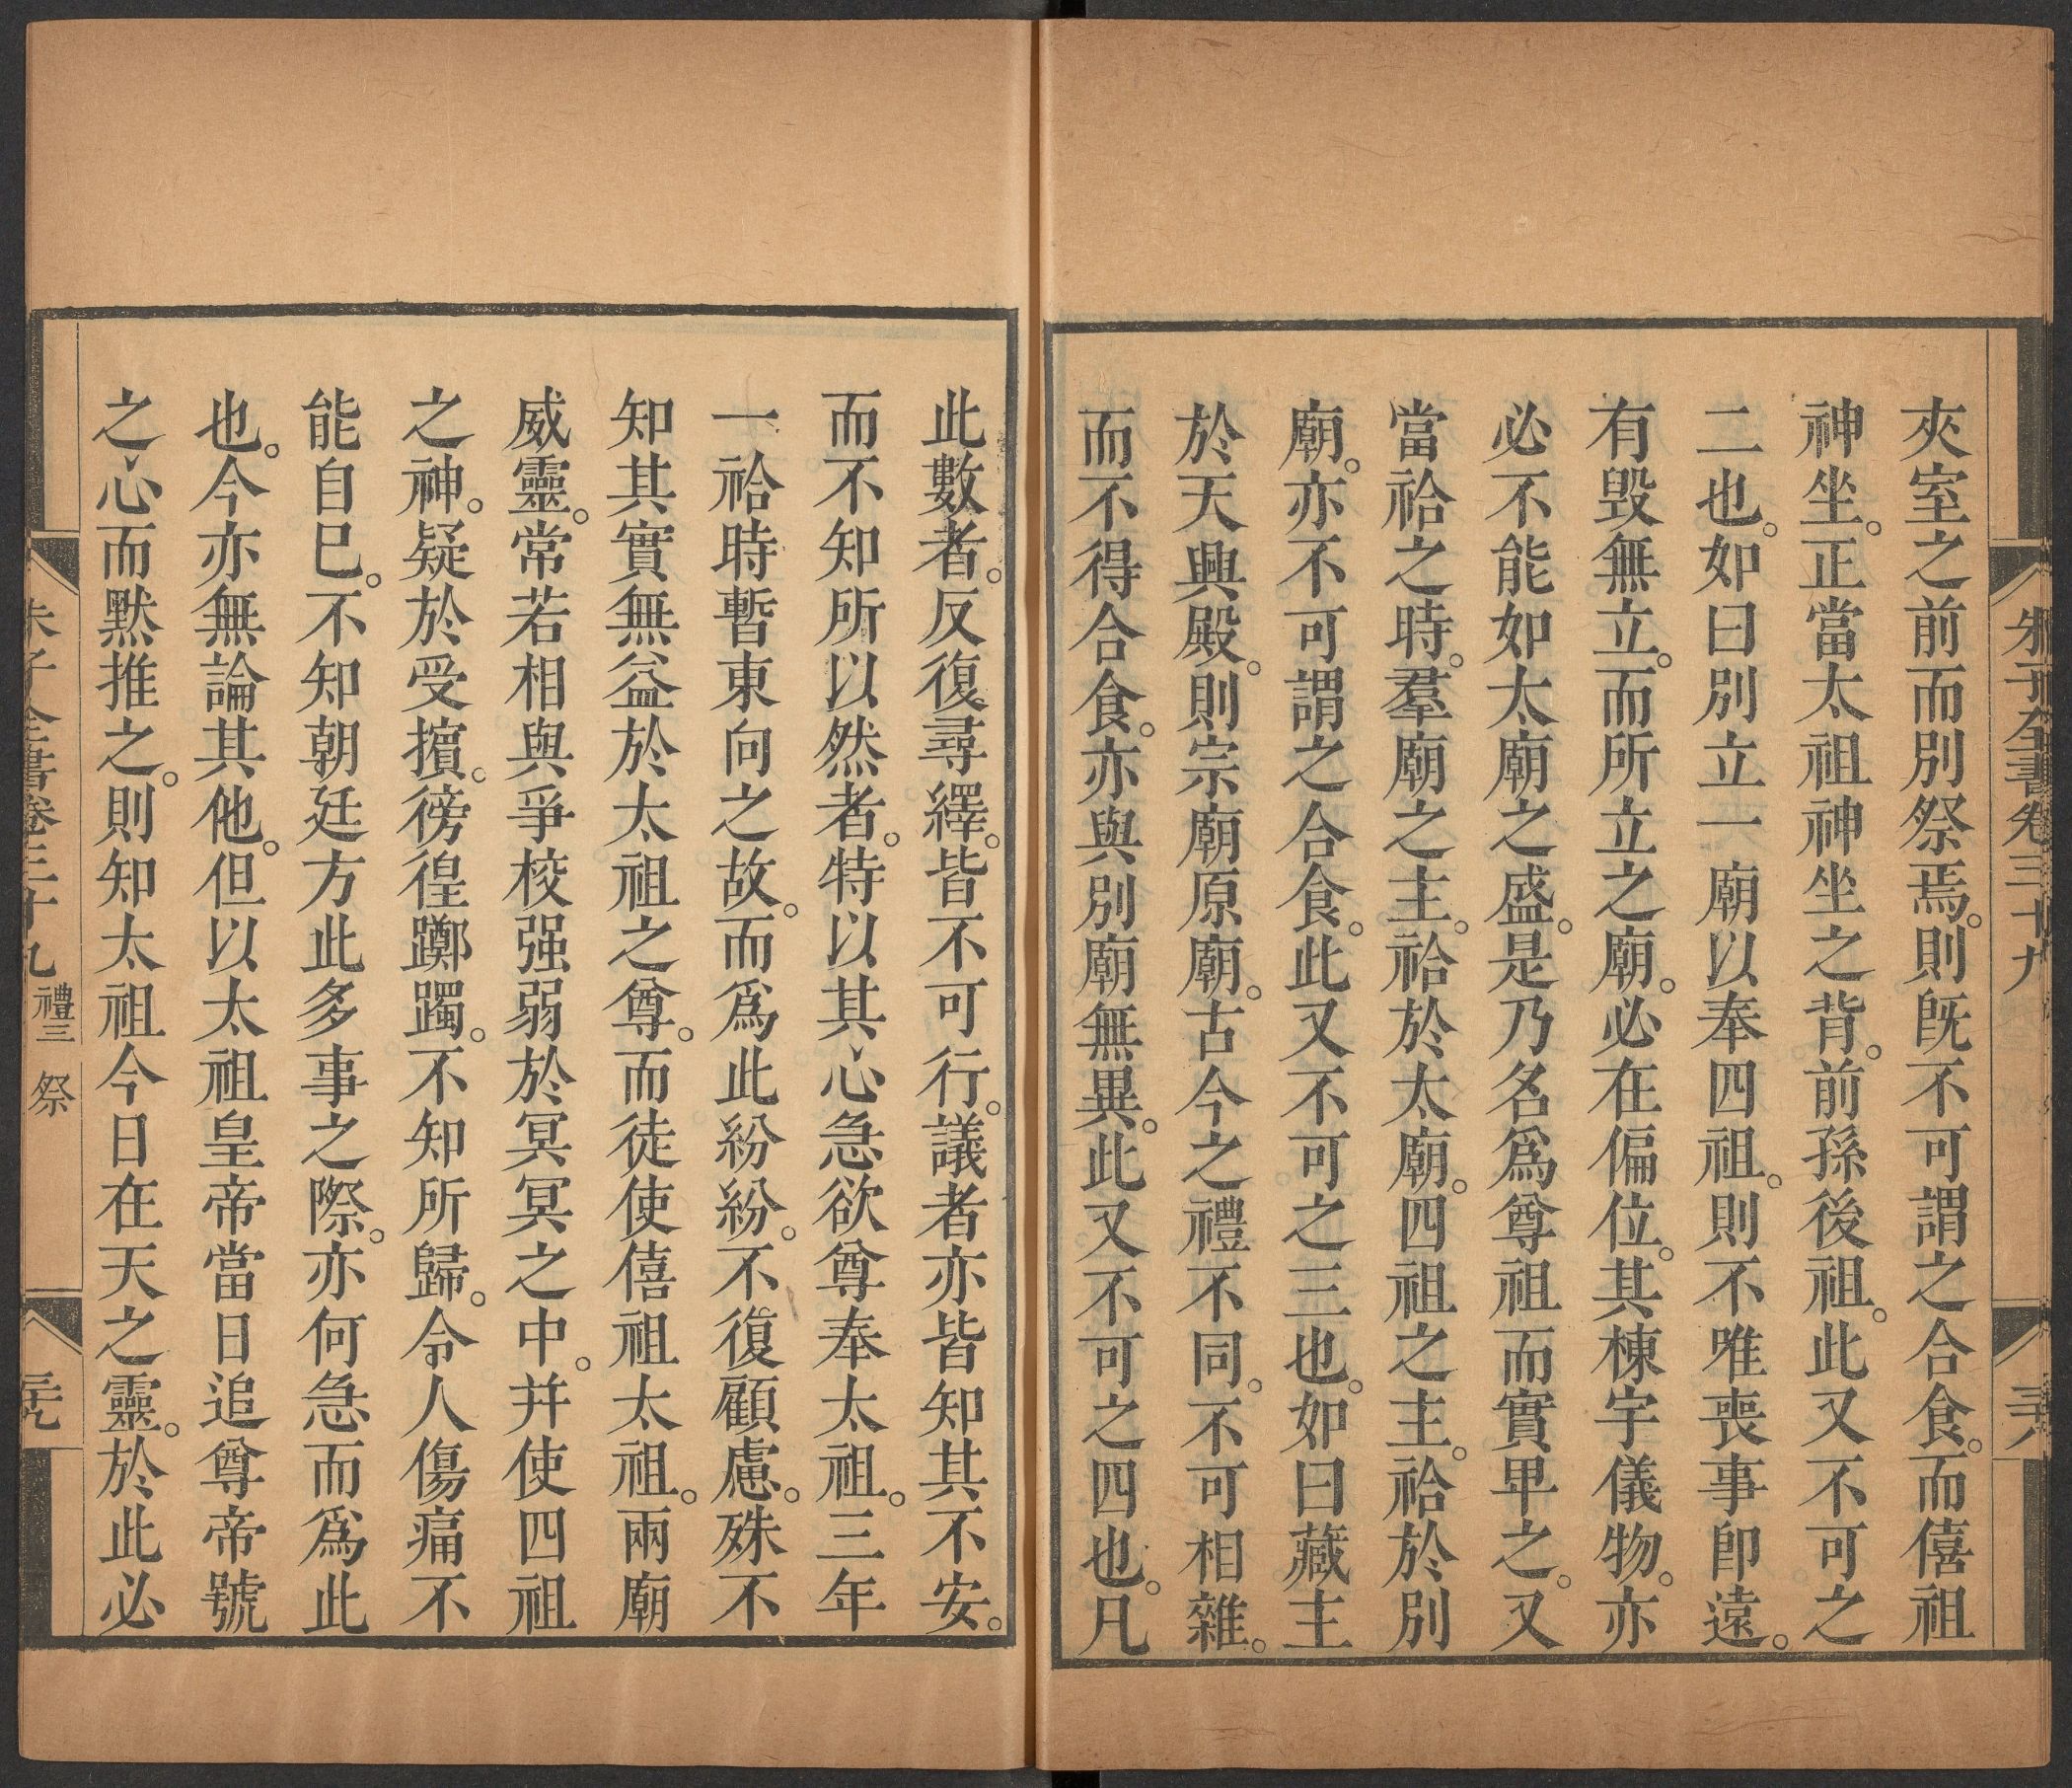 夾室之前而別祭焉。則旣不可謂之合食。而僖祖
神坐。正當太祖神坐之背。前孫後祖。此又不可之
二也。如曰別立一廟以奉四祖。則不唯喪事卽遠。
有毁無立。而所立之廟。必在偏位。其棟宇儀物。亦
必不能如太廟之盛。是乃名爲尊祖而實𤰞之。又
當祫之時。羣廟之主。祫於太廟。四祖之主。祫於別
廟。亦不可謂之合食。此又不可之三也。如曰藏主
於天興殿。則宗廟原廟。古今之禮不同。不可相雜。
而不得合食。亦與別廟無異。此又不可之四也。凡
朱子全書卷三十九
此數者。反復尋繹。皆不可行。議者亦皆知其不安。
而不知所以然者。特以其心急欲尊奉太祖。三年
一祫時暫東向之故。而爲此紛紛。不復顧慮。殊不
知其實無益於太祖之尊。而徒使僖祖太祖。兩廟
威靈。常若相與爭校强弱於冥冥之中。并使四祖
之神。疑於受擯。徬徨躑躅。不知所歸。令人傷痛不
能自巳。不知朝廷方此多事之際。亦何急而爲此
也。今亦無論其他。但以太祖皇帝當日追尊帝號
之心而默推之。則知太祖今日在天之靈。於此必
朱子全書卷三十九 禮三 祭